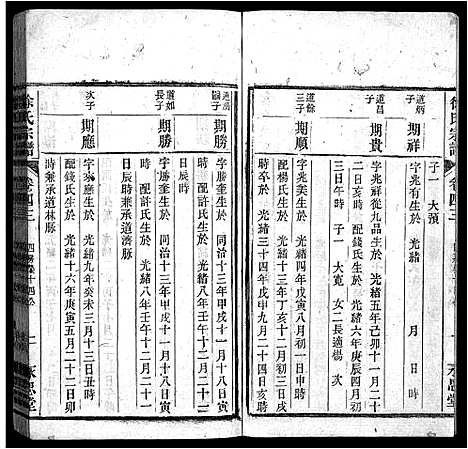 道炳
子
期祥
字兆有生於　光緒　　月　日　時
子一　大預
道昌
子
期貴
字兆祥從九品生於　光緒五年己卯十一月二十
二日亥時　配錢氏生於　光緒六年庚辰四月初
三日午時　子一　大寬　女二長適楊　次
道餘
子
期順
字兆美生於　光緒四年戊寅十一月初四日寅時
配楊氏生於　光緒十三年丁亥十月十三日辰
時卒於　光緒三十四年戊申九月二十四日亥時
徐氏宗譜
卷四三
永思堂
嗣子
期勝
字勝奎生於　同治十三年甲戌十一月十八日寅
時　配許氏生於　光緒八年壬午十二月二十一
日辰時
道如
長子
期勝
字勝奎生於　同治十三年甲戌十一月十八日寅
時　配許氏生於　光緒八年壬午十二月二十一
日辰時兼承道濟脈
次子
期應
字　應生於　光緒九年癸未三月十三日丑時
配錢氏生於　光緒十六年庚寅五月二十二日卯
時兼承道林脈